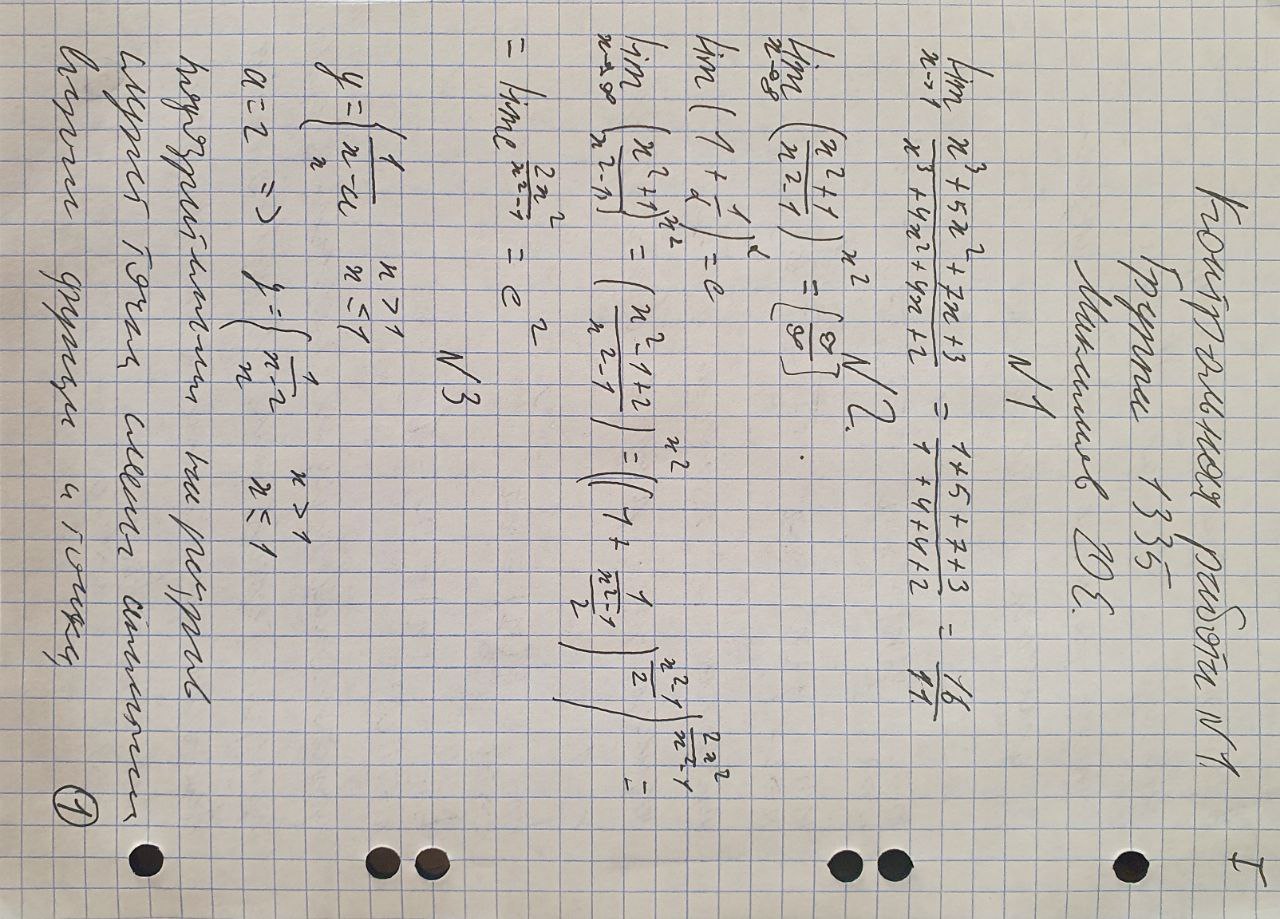 I
Контрольная работа №1.
Группа 1335
Максимов Ю Е.
№1
lim x→1 (x³+5x²+7x+3)/(x³+4x²+4x+2) = (1+5+7+3)/(1+4+4+2) = 16/11.
№2.
lim x→∞ ((x²+1)/(x²-1))^(x²) = [∞/∞]
lim (1 + 1/α)^α = e
lim x→∞ ((x²+1)/(x²-1))^(x²) = ((x²-1+2)/(x²-1))^(x²) = ((1 + 1/((x²-1)/2))^((x²-1)/2))^(2x²/(x²-1)) =
= lim e^(2x²/(x²-1)) = e²
№3
y = { 1/(x-a) x > 1
x x ≤ 1
a = 2 => y = { 1/(x-2) x > 1
x x ≤ 1
подозрительными на разрыв
служат точка смены аналитич
функци и точка,
1